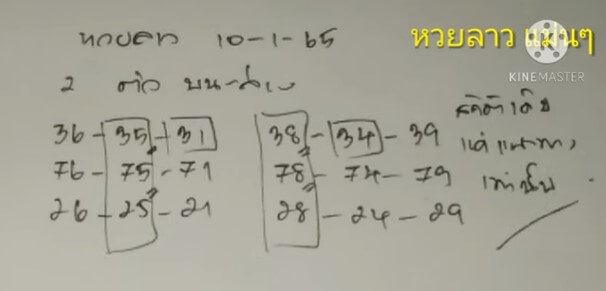 หวยลาว 10-1-65
หวยลาว แม่นๆ
KINEMASTER
2 ตัว บน-ล่าง
36-35-31 38-34-39
76-75-71 78-74-79
26-25-21 28-24-29
สถิติเก็บ
แค่แนวทาง
เท่านั้น